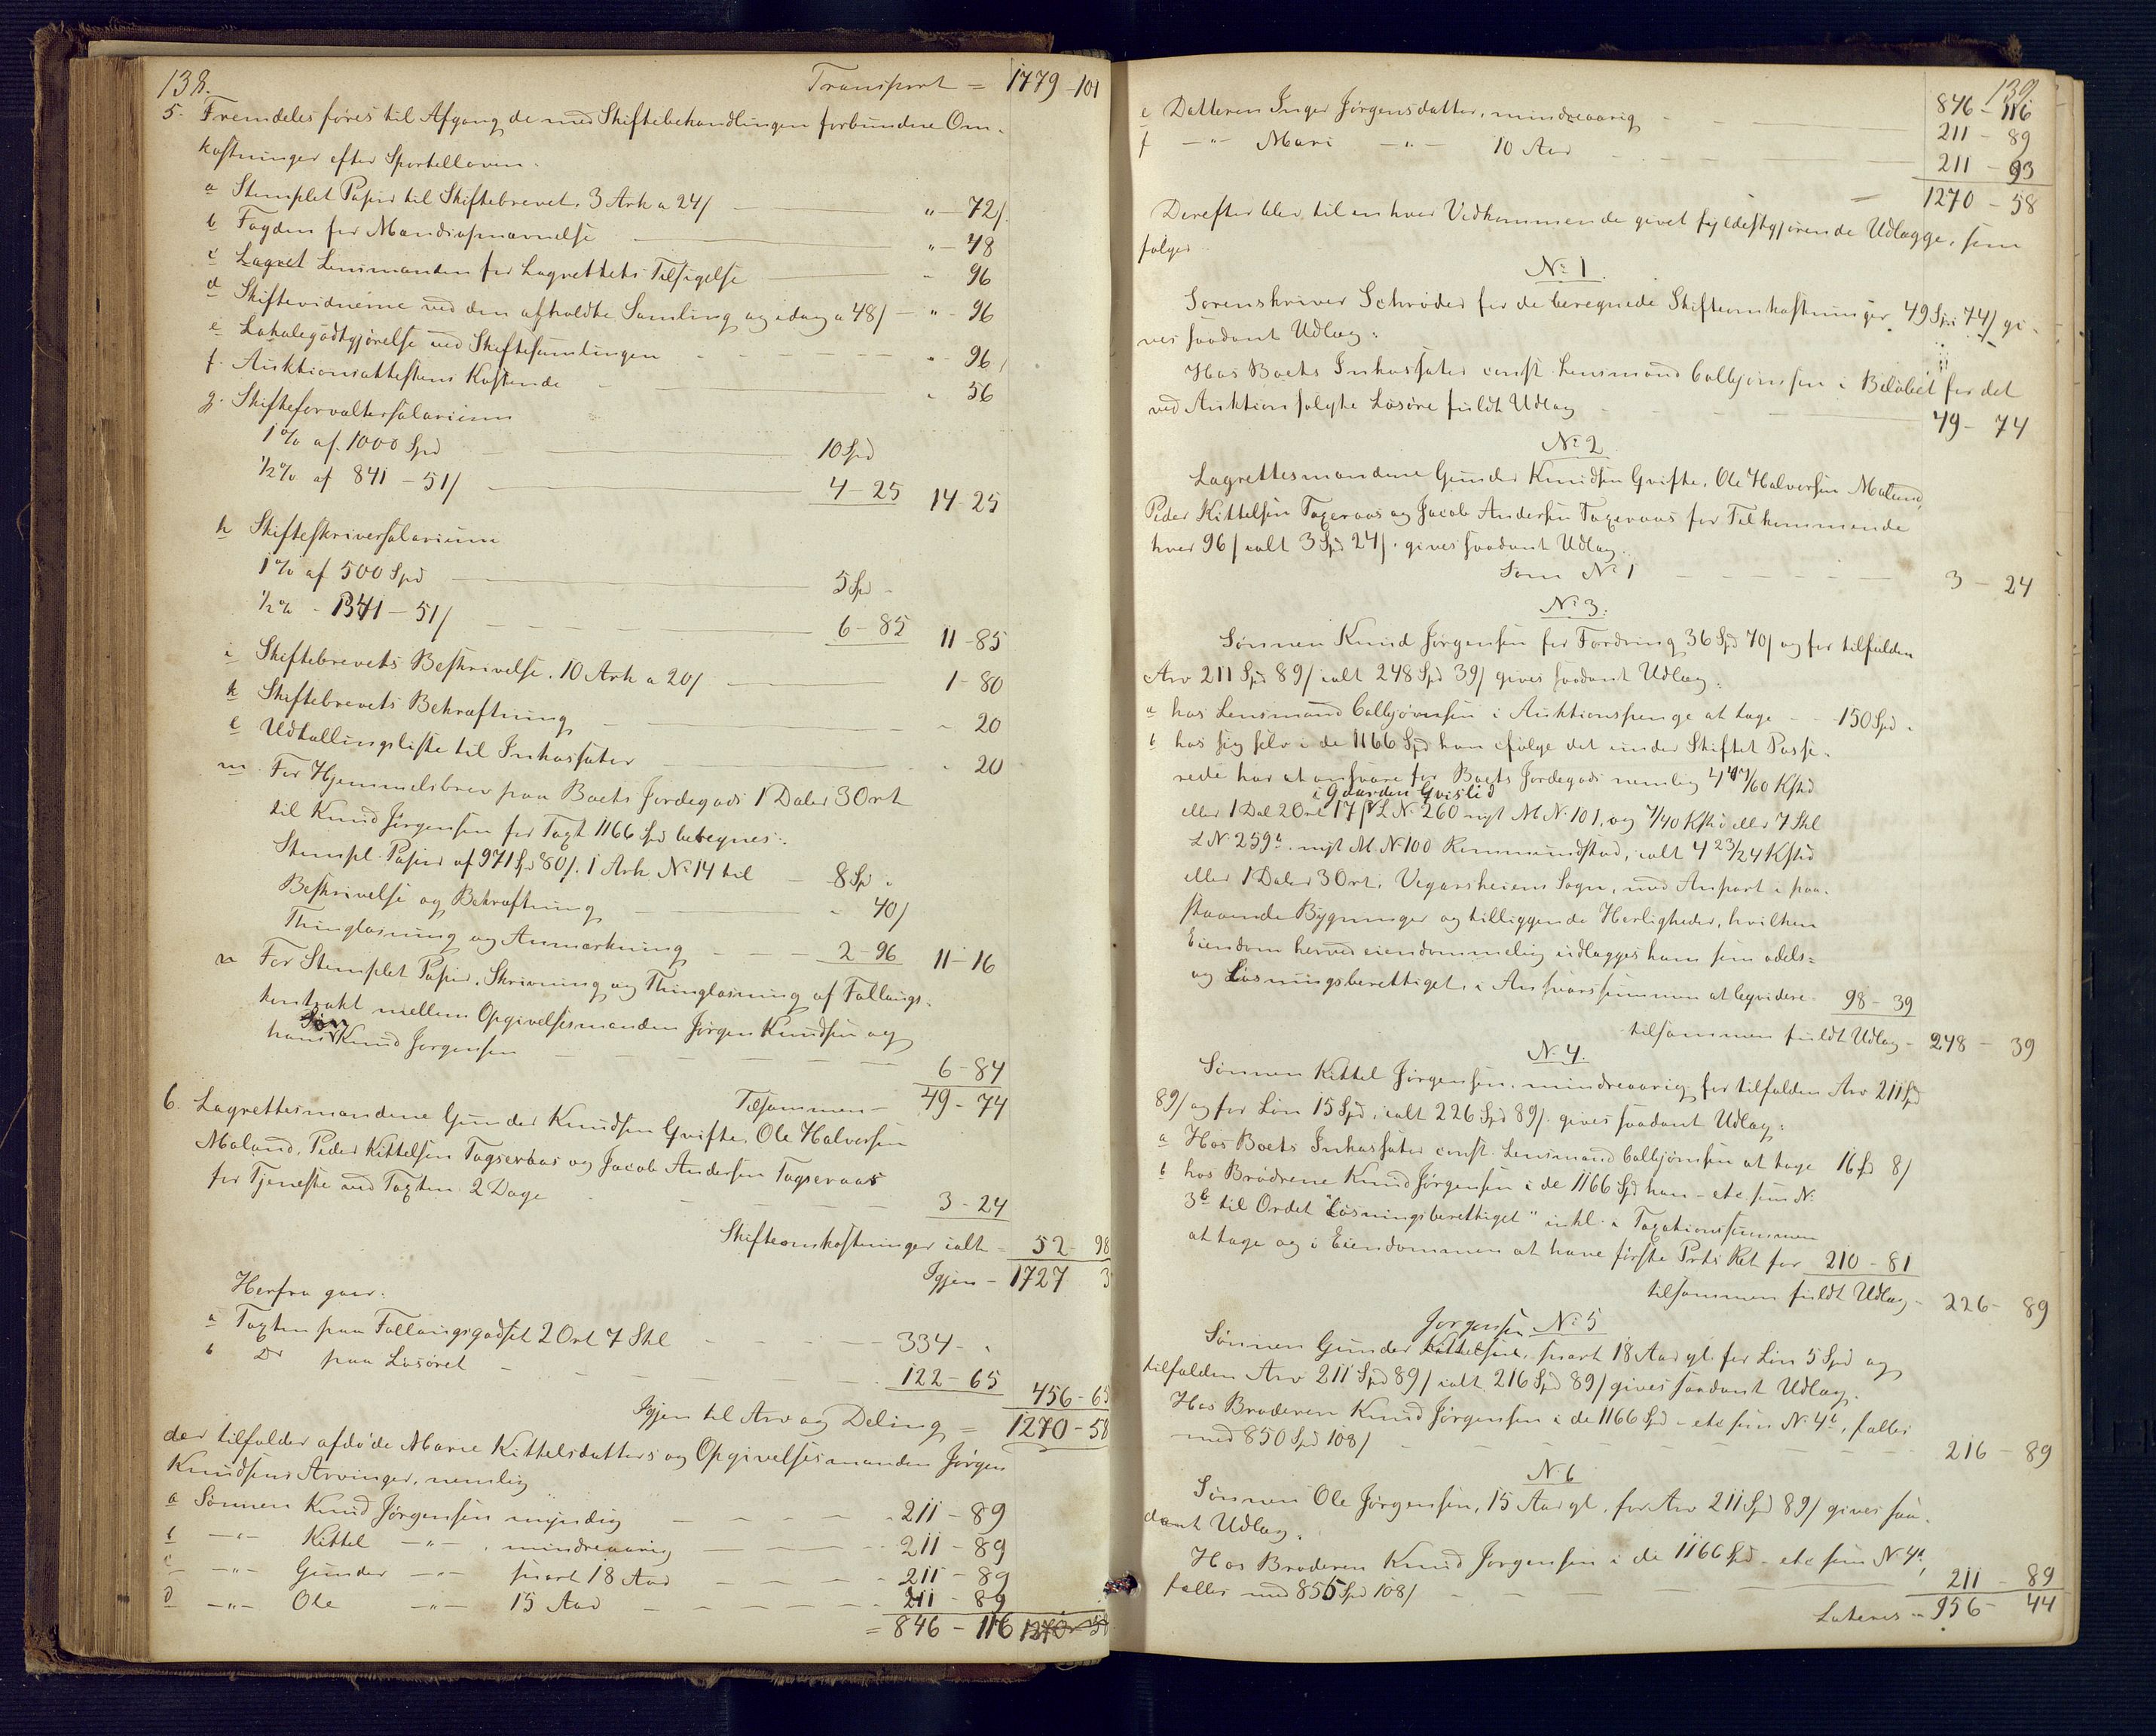 138.
Transport = 1779-101
5. Fremdeles føres til Afgang de med Skiftebehandlingen forbundne Om-
kostninger efter Sportelloven.
a Stemplet Papir til Skiftebrevet, 3 Ark a 24/ " - 72/.
b Fogden for Mandsopnævnelse " - 48
c Lagret Lensmanden for Lagrettets Tilsigelse " 96
d Skiftevidnerne ved den afholdte Samling og idag a 48/ - " - 96
e Lokalegodtgjørelse ved Skiftesamlingen " - 96/
f. Auktionsattestens Kostende " 56
g. Skifteforvaltersalarium
1% af 1000 Spd 10 Spd
½% af 841-51/ 4-25 14-25
h Skifteskriversalarium
1% af 500 Spd 5 Spd -
½% - 1341-51/ 6-85 11-85
i Skiftebrevets Beskrivelse. 10 Ark a 20/ 1-80
k Skiftebrevets Bekræftning " 20
l Udtallingsliste til Inkassator " 20
m For Hjemmelsbrev paa Boets Jordegods 1 Daler 3 Ort
til Knud Jørgensen for Taxt 1166 Spd beregnes:
Stempl. Papir af 971 Spd 80/. 1 Ark No 14 til - 8 Sp "
Beskrivelse og Bekræftning " 40/
Thinglæsning og Anmærkning 2-96 11-16
n For Stemplet Papir, Skrivning og Thinglæsning af Føllaugs-
kontrakt mellem Opgivelsesmanden Jørgen Knudsen og
hans Søn Knud Jørgensen 6-84
Tilsammen - 49-74
6. Lagrettesmændene Gunder Knudsen Gryfte, Ole Halvorsen
Moland, Peder Kittelsen Taxeraas og Jacob Andersen Taxeraas
for Tjeneste ved Taxten 2 Dage 3-24
Skifteomkostninger ialt = 52-98
Igjen - 1727 3
Herfra gaar:
a Taxten paa Føllaugsgodset 2 Ort 7 Skl 334 - "
b Do paa Løsøret 122-65 456-65
Igjen til Arv og Deling = 1270-58
der tilfalder afdøde Marie Kittelsdatters og Opgivelsesmanden Jørgen
Knudsens Arvinger, nemlig
a Sønnen Knud Jørgensen myndig 211-89
b -"- Kittel -"- , mindreaarig 211-89
c -"- Gunder -"- snart 18 Aar 211-89
d -"- Ole -"- 15 Aar 211-89
= 846-116 1270-58
139
846-116
e Datteren Inger Jørgensdatter, mindreaarig 211-89
f -"- Mari -"- 10 Aar 211-93
1270-58
Derefter blev til enhver Vedkommende givet fyldestgjørende Udlægge, som
følger
No 1.
Sorenskriver Schrøder for de beregnede Skifteomkostninger 49 Spd 74/ gi-
ves saadant Udlæg:
Hos Boets Inkassator const. Lensmand Calbjørnsen i Beløbet for det
ved Auktion solgte Løsøre fuldt Udlæg 49-74
No 2.
Lagrettesmændene Gunder Knudsen Gryfte, Ole Halvorsen Moland,
Peder Kittelsen Taxeraas og Jacob Andersen Taxeraas for Tilkommende
hver 96/ ialt 3 Spd 24/. gives saadant Udlæg:
Som No 1 3-24
No 3.
Sønnen Knud Jørgensen for Fordring 36 Spd 70/ og for tilfalden
Arv 211 Spd 89/ ialt 248 Spd 39/ gives saadant Udlæg:
a hos Lensmand Calbjørnsen i Auktionspenge at tage - - 150 Spd "
b hos sig selv i de 1166 Spd han ifølge det under Skiftet Passe-
rede har at ansvare for Boets Jordegods nemlig 4 /60 Kskd
i Gaarden Gvistid
eller 1 Dal 2 Ort 17 ß L No 260 nyt M No 101, og 7/40 Kskd eller 7 Skl
L No 259b nyt M No 100 Rommundstad, ialt 4 23/24 Kskd
eller 1 Daler 3 Ort, Vegarsheiens Sogn, med Anpart i paa-
staaende Bygninger og tilliggende Herligheder, hvilken
Eiendom herved eiendommelig udlægges ham som odels-
og Løsningsberettiget, i Ansvarssummen at liqvidere 98-39
tilsammen fuldt Udlæg - 248-39
No 4.
Sønnen Kittel Jørgensen, mindreaarig for tilfalden Arv 211 Spd
89/ og for Løn 15 Spd, ialt 226 Spd 89/. gives saadant Udlæg:
a Hos Boets Inkassator const. Lensmand Calbjørnsen at tage 16 Spd 8/
b hos Brødrene Knud Jørgensen i de 1166 Spd han - etc som No
3b til Ordet "Løsningsberettiget" inkl. i Taxationssummen
at tage og i Eiendommen at have første Prts Ret for 210-81
tilsammen fuldt Udlæg - 226-89
No 5
Sønnen Gunder Kittelsen Jørgensen, snart 18 Aar gl. for Løn 5 Spd og
tilfalden Arv 211 Spd 89/ ialt 216 Spd 89/ gives saadant Udlæg.
Hos Broderen Knud Jørgensen i de 1166 Spd - etc som No 4b, falles
med 850 Spd 108/ 216-89
No 6
Sønnen Ole Jørgensen, 15 Aar gl, for Arv 211 Spd 89/ gives saa-
dant Udlæg.
Hos Broderen Knud Jørgensen i de 1166 Spd - etc som No 4b,
falles med 855 Spd 108/ 211-89
Lateris - 956-44